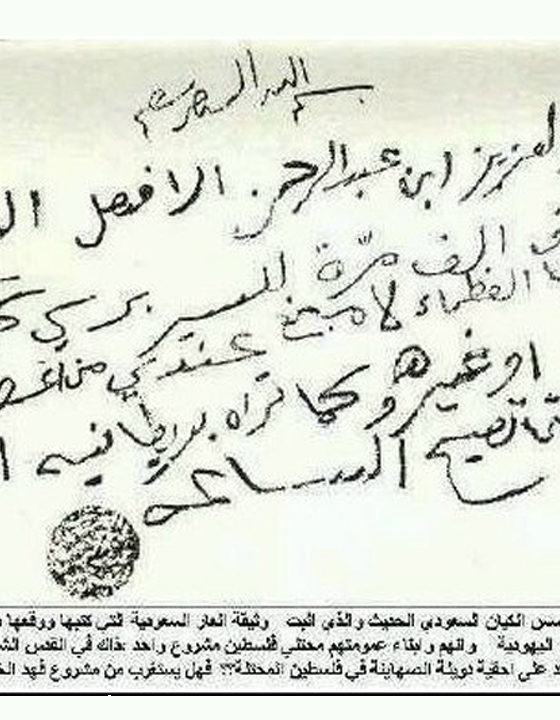 بسم الله الرحمن الرحيم
لعزيز ابن عبدالرحمن الافصل
الف مرّة للسير برسي
العظماء لا مبنع عندي من
او غيرهم وكما تراه بريطانيه
تصيح الساعه
الكيان السعودي الحديث والذي اثبت وثيقة العار السعودية التي كتبها ووقعها
اليهودية وانهم وابناء عمومتهم محتلي فلسطين مشروع واحد ،ذاك في القدس
على احقية دويلة الصهاينة في فلسطين المحتلة؟؟ فهل يستغرب من مشروع فهد